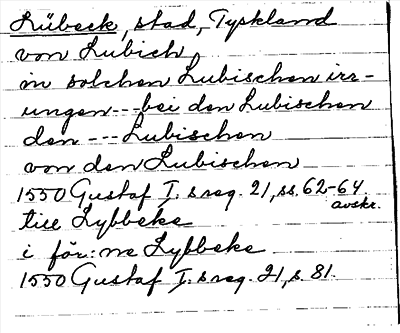 Lübeck, stad, Tyskland
von Lubich
in solchen Lubischen irr-
ungen---bei den Lubischen
den --- Lubischen
von den Lubischen
1550 Gustaf I:s reg. 21, ss. 62-64.
avskr.
till Lybbeke
i för:ne Lybbeke
1550 Gustaf I:s reg. 21, s. 81.